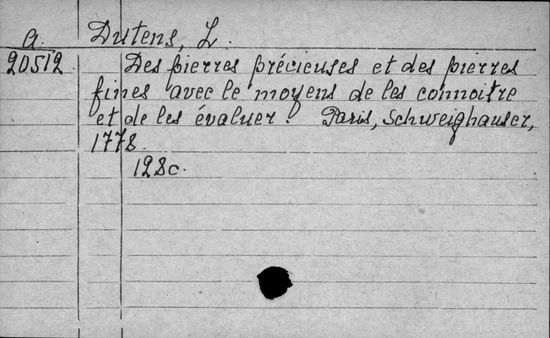 a. Dutens, L.
20512 Des pierres précieuses et des pierres
fines avec le moyens de les connoitre
et de les évaluer. Paris, Schweighauser,
1778.
128c.